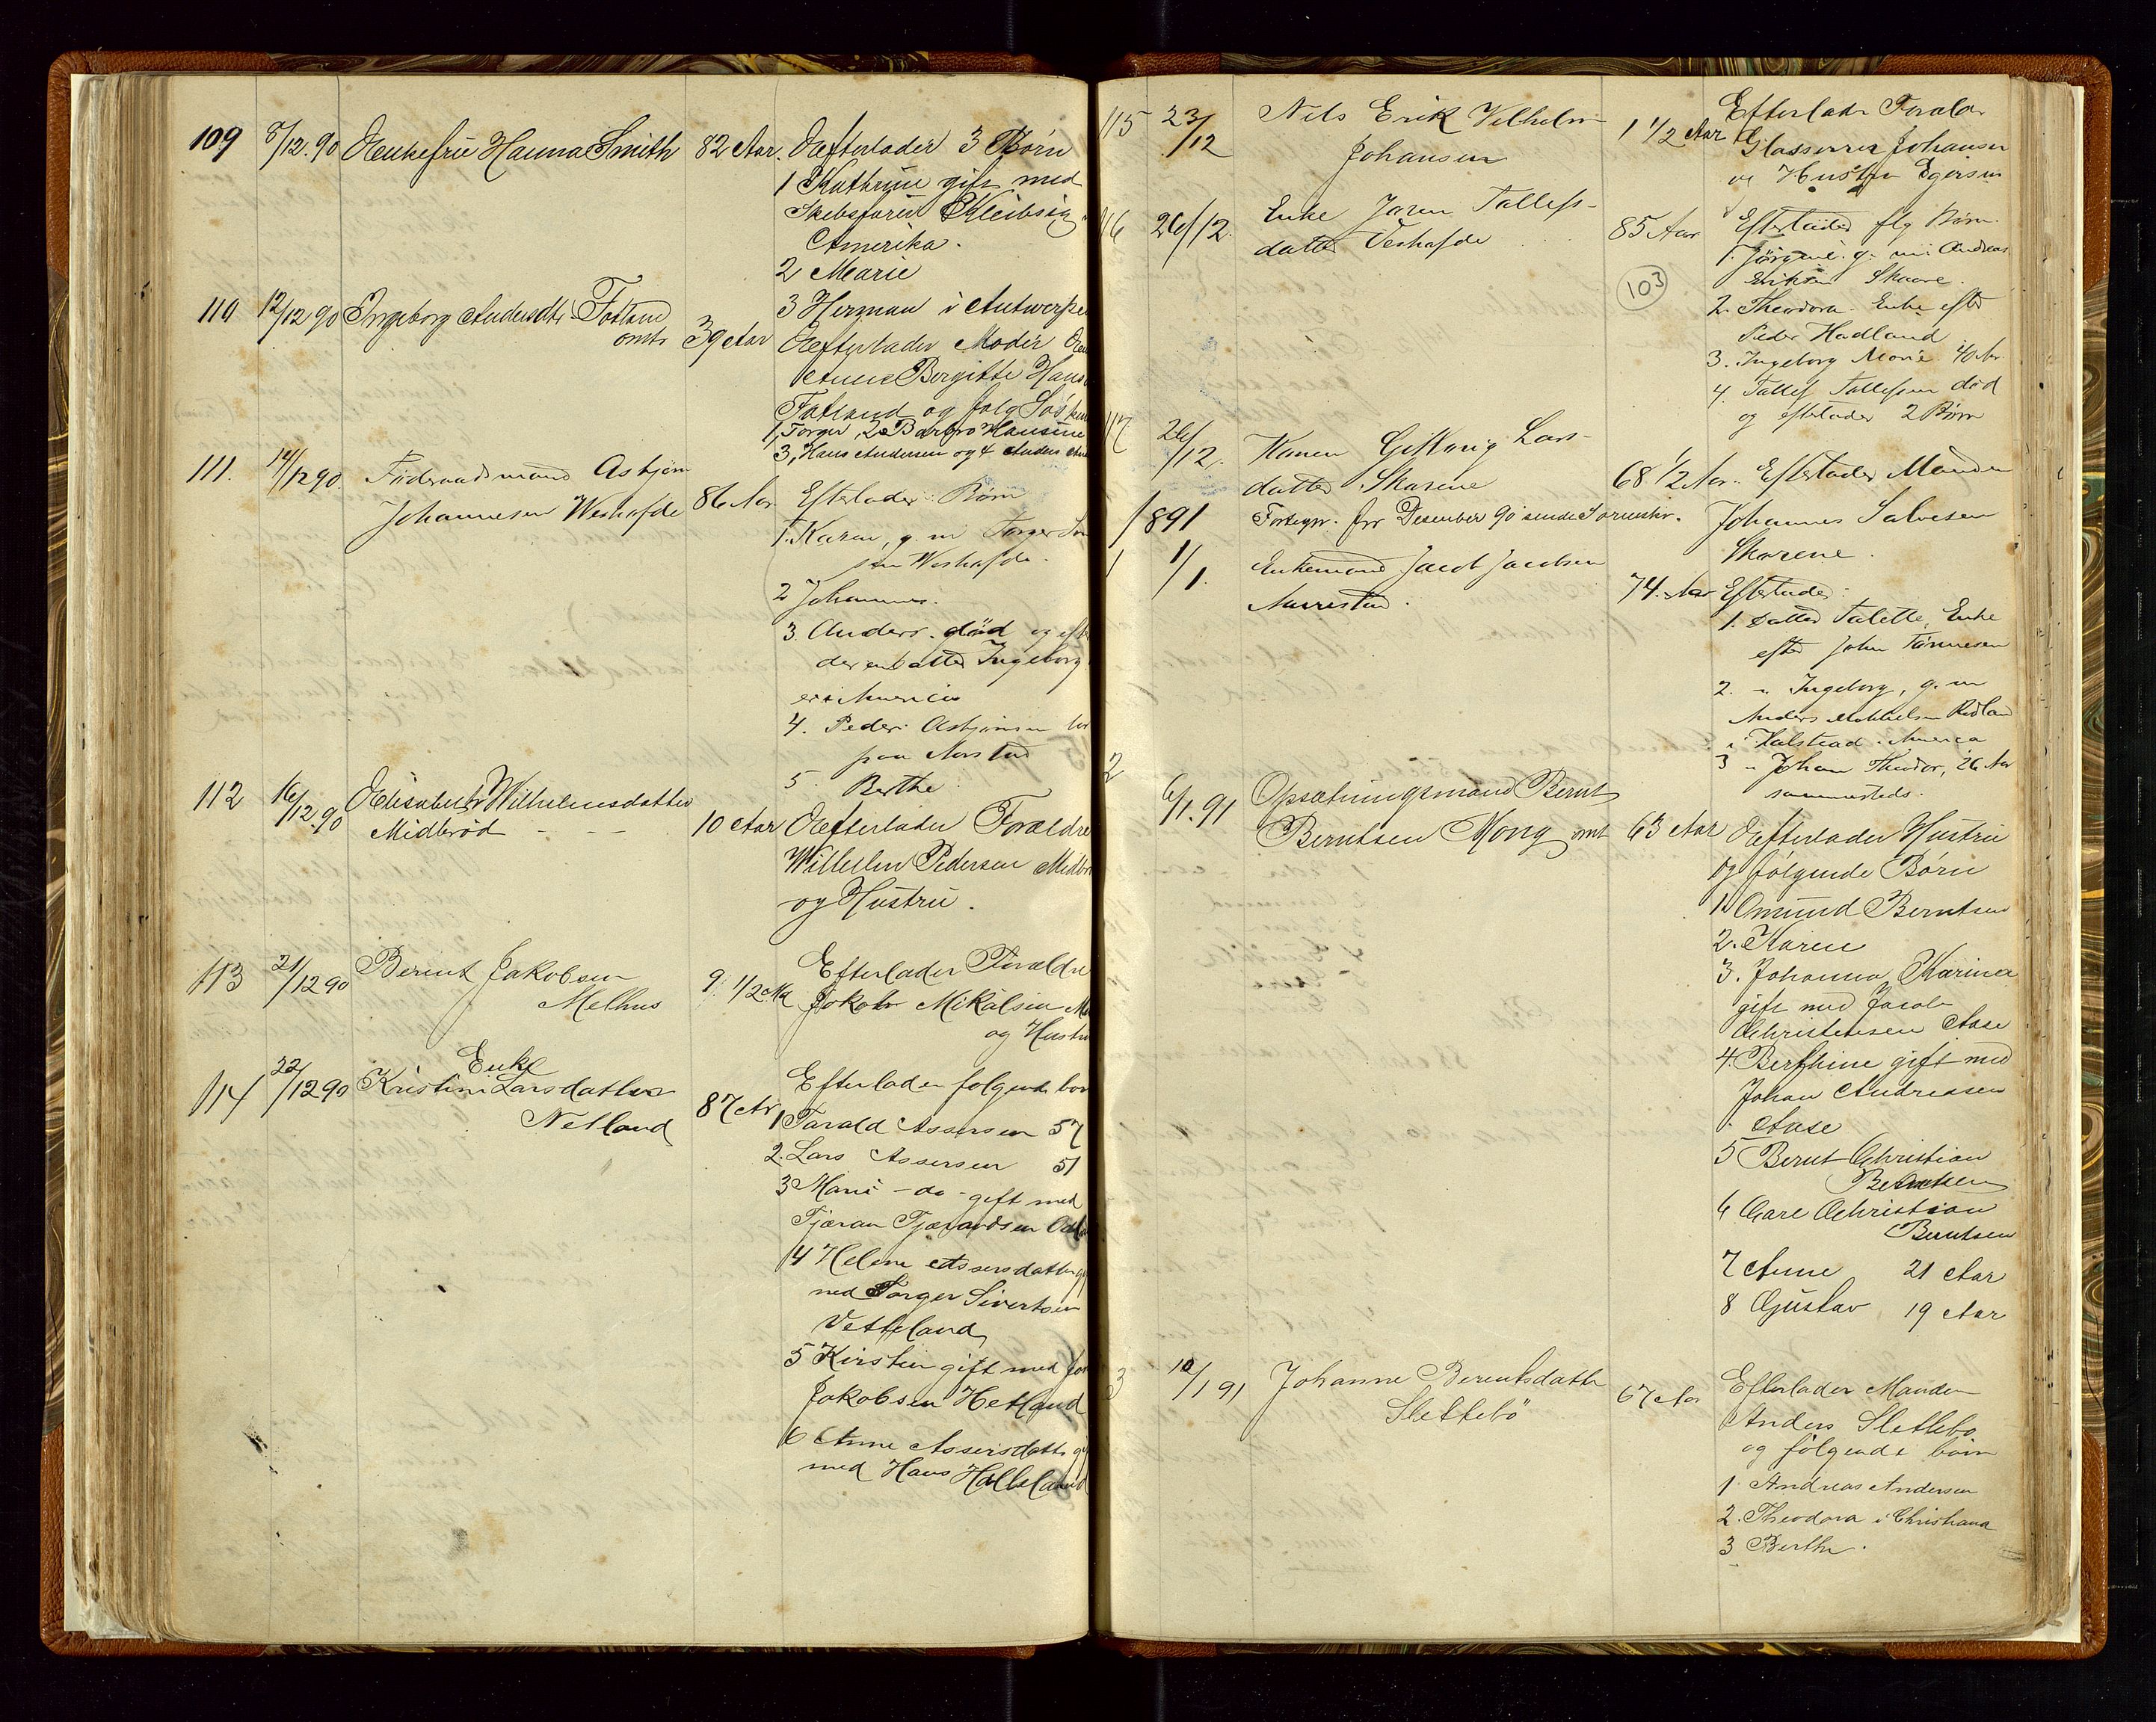 109 8/12.90 Enkefru Hanna Smith 82 Aar. Efterlader 3 Børn
1 Kathrine gift med
Skibsfører Kleibsig
Amerika.
2 Marie
3 Herman i Antwerpe
110 12/12 90 Ingeborg Andersdtr Fotland
omtr 39 Aar Efterlader Moder
Anne Bergitte Hans
Fotland og følg Søsken
1, Torger, 2 Barbro Hansine
3, Hans Andersen og 4 Anders
111. 14/12 90. Føderaadsmand Asbjørn
Johannesen Weshafde 86 Aar Efterlader Børn
1. Karen, g. m Torger
sen Weshafde.
2 Johannes.
3. Anders. død og eft
der en datter Ingeborg
er i America
4. Peder Asbjørnsen
paa Aarstad
5. Berthe
112 16/12.90 Elisabeth Wilhelmsdatter
Midbrød - - 10 Aar Efterlader Forældre
Willhelm Pedersen Midbr
og Hustru.
113 21/12 90 Berent Jakobsen
Melhus 9 1/2 Efterlader Forældre
Jakob Mikalsen Me
og Hustru
114 22/12 90 Enke
Kristine Larsdatter
Netland 87 Ar Efterlader følgende børn
1 Tarald Assersen 57
2. Lars Assersen 51
3 Mari - do - gift med
Tjæran Tjærandsen
4 Helene Assersdatter g
med Torger Sivertsen
Vetteland
5 Kirstin gift med
Jakobsen Hetland
6 Anne Assersdatter g
med Hans Halleland
115 23/12 Nils Erik Vilhelm
Johansen 1 1/2 Aar Efterlader Foræld
Glasserer Johansen
og Hustru Egersun
116 26/12. Enke Jaren Tallefs-
datter Veshafde 85 Aar Efterlader flg Børn.
(103)
1. Jørgine. g. m: Andreas
Eriksen Skaare.
2. Theodora. Enke efter
Peder Hadland
3. Ingeborg Marie 40 Ar.
4. Tallef Tallefsen død
og efterlader 2 Børn
117 26/12. Konen Gitlaug Lars-
datter Skarene 68 1/2 Aar. Efterlader Manden
Johannes Salvesen
Skarene.
1891 Fortegn. for Desember 90 sendt Sorenskr.
1 1/1. Enkemand Jacob Jacobsen
Aarrestad. 74. Aar Efterlader:
1. datter Talette, Enke
efter John Tønnesen
2. " Ingeborg, g. m
Anders Rodland
i Halstead. America
3 " Johan Theodor, 26 Aar
sammesteds.
2 6/1. 91 Opsætningsmand Bernt
Berntsen Mong omt 63 Aar Efterlader Hustru
og følgende Børn
1. Omund Berntsen
2. Karen
3. Johanna Karina
gift med Jacob
Christensen Aase
4. Berthine gift med
Johan Andreasen
Aase
5 Bernt Christian
Berntsen
6 Carl Christian
Berntsen
7 Anne 21 Aar
8 Gustav 19 Aar
3 10/1 91 Johanne Berentsdatter
Slettebø 67 Aar Efterlader Manden
Anders Slettebø
og følgende børn
1. Andreas Andersen
2. Theodora i Christiana
3 Berthe.